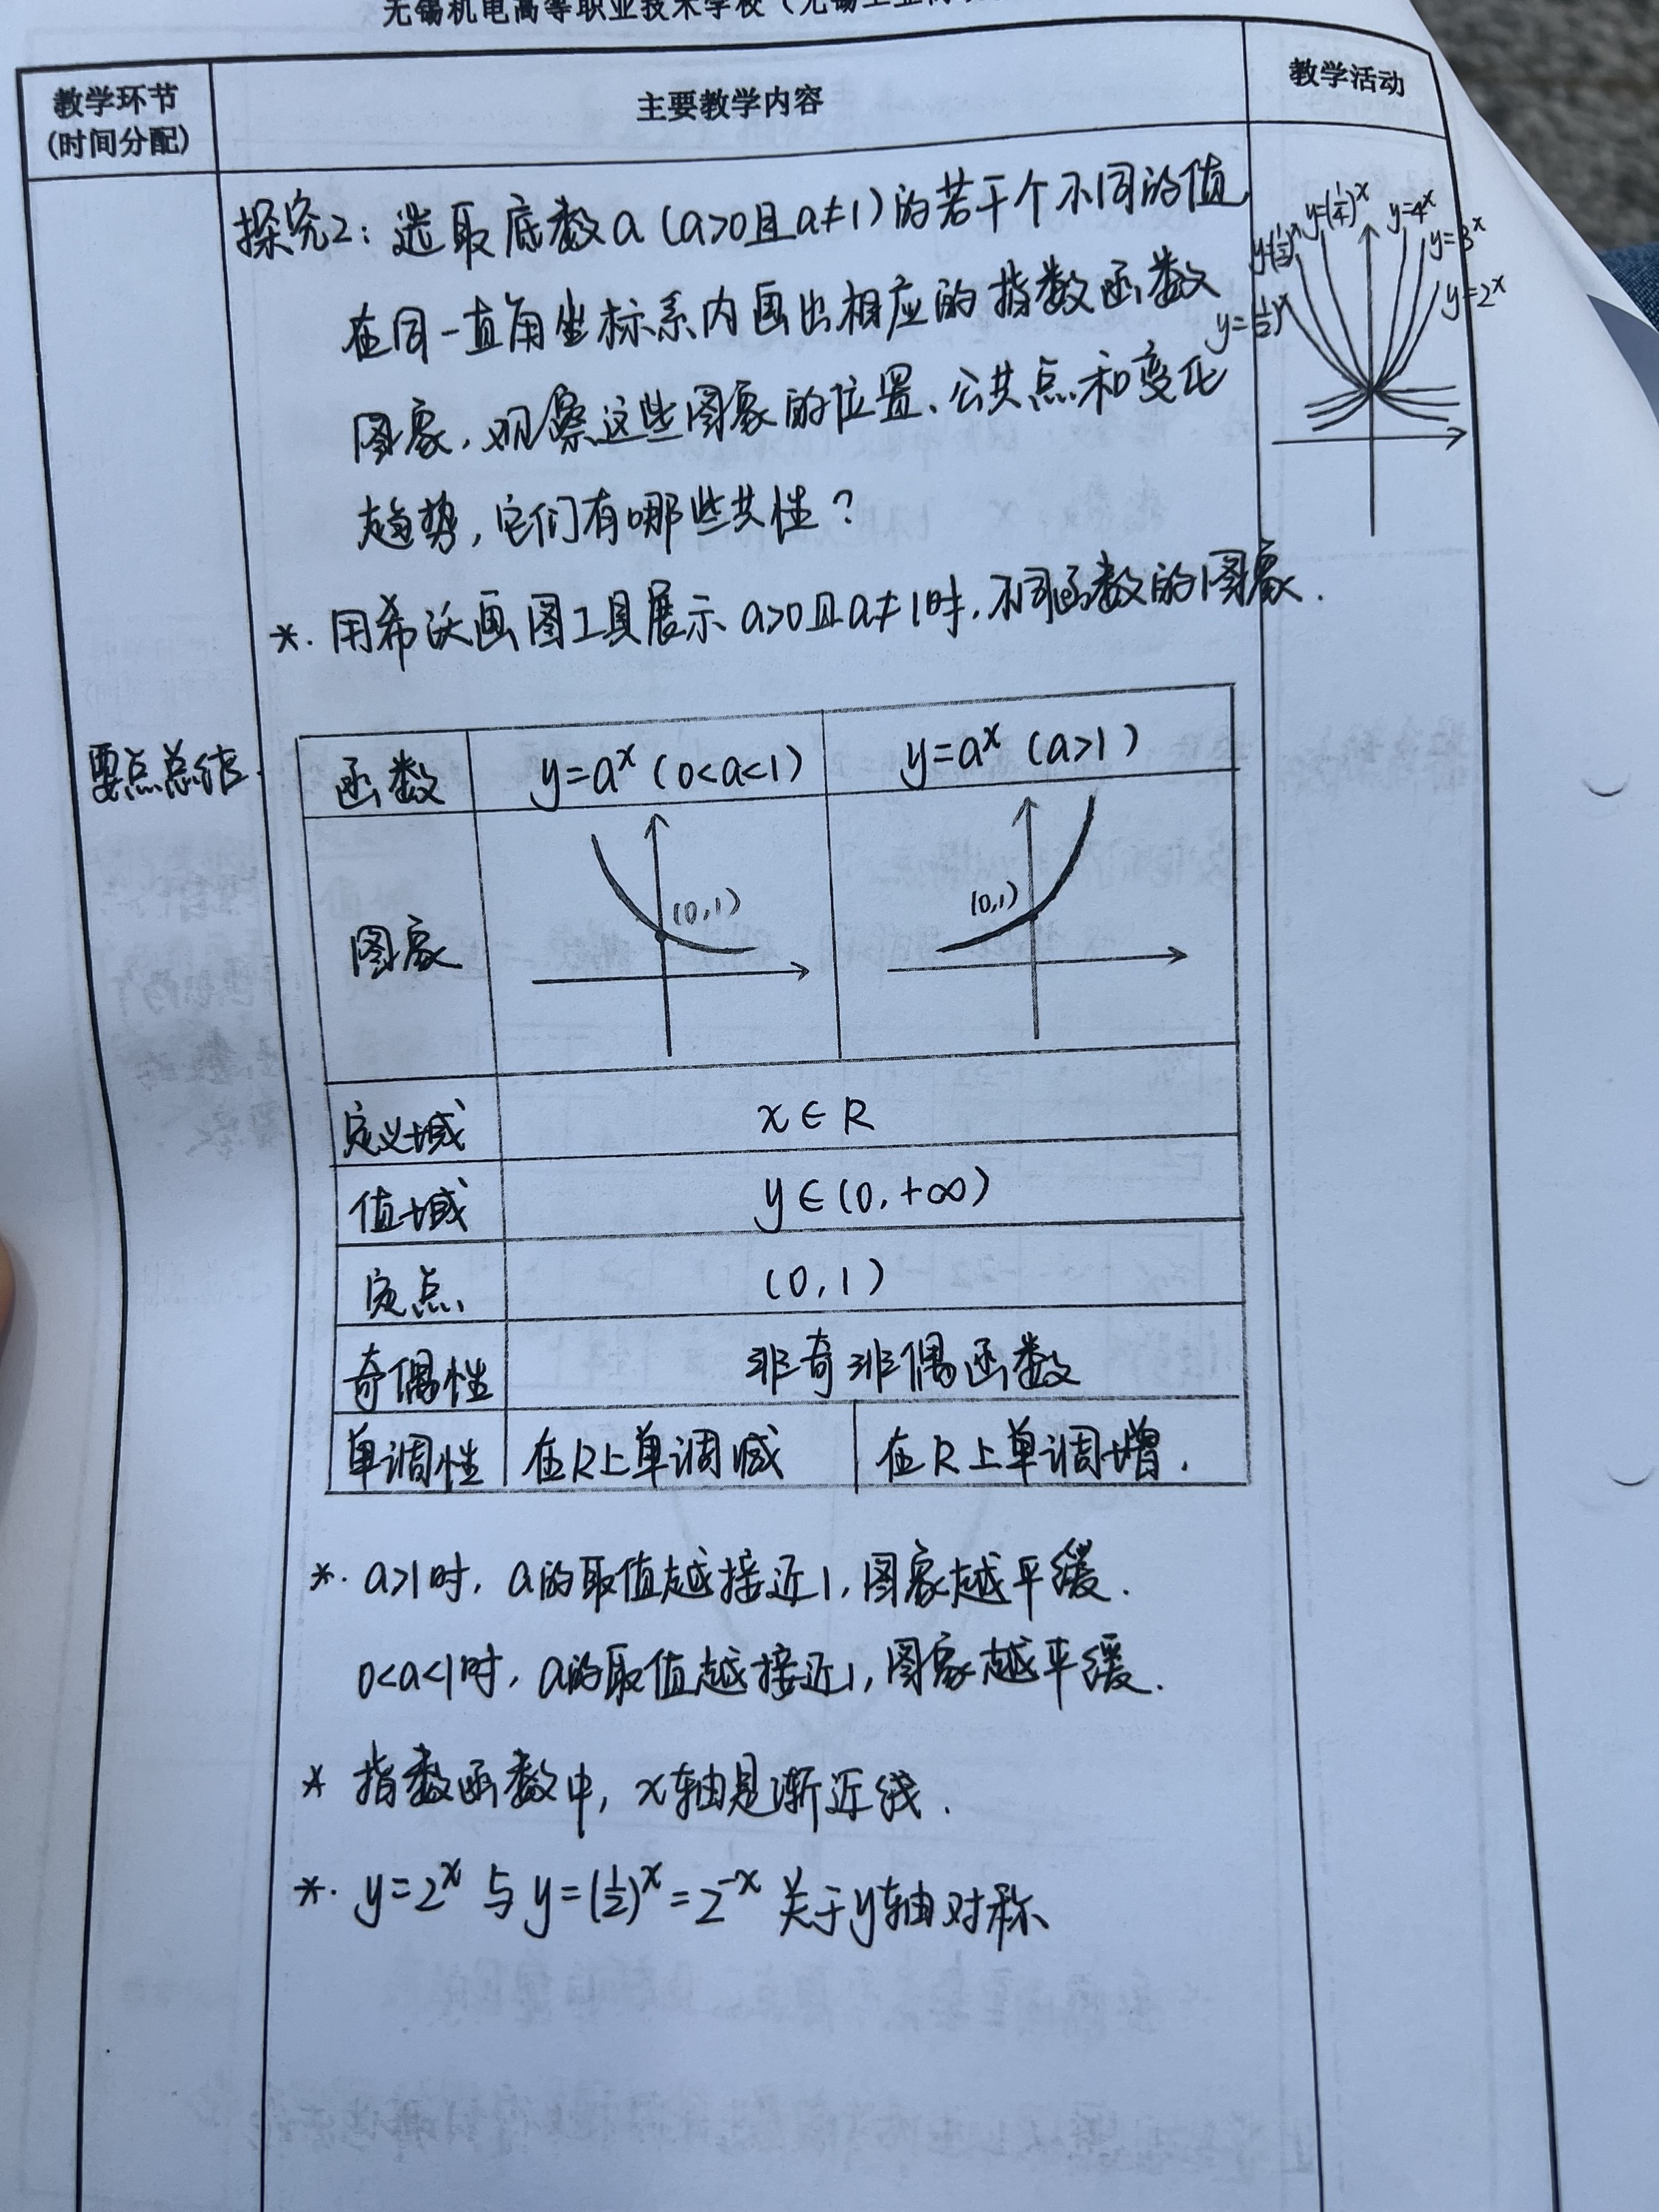 无锡机电高等职业技术学校（无锡
教学环节
(时间分配)
主要教学内容
教学活动
探究2：选取底数a（a>0且a≠1）的若干个不同的值
在同一直角坐标系内画出相应的指数函数
图象，观察这些图象的位置、公共点和变化
趋势，它们有哪些共性？
*. 用希沃画图工具展示 a>0且a≠1时，不同函数的图象.
y=(1/2)^x
y=(1/3)^x
y=(1/4)^x
y=4^x
y=3^x
y=2^x
要点总结.
函数 y=a^x (0<a<1) y=a^x (a>1)
图象 (0,1) (0,1)
定义域 x∈R
值域 y∈(0,+∞)
定点 (0,1)
奇偶性 非奇非偶函数
单调性 在R上单调减 在R上单调增.
*. a>1时，a的取值越接近1，图象越平缓.
0<a<1时，a的取值越接近1，图象越平缓.
* 指数函数中，x轴是渐近线.
*. y=2^x 与 y=(1/2)^x=2^-x 关于y轴对称